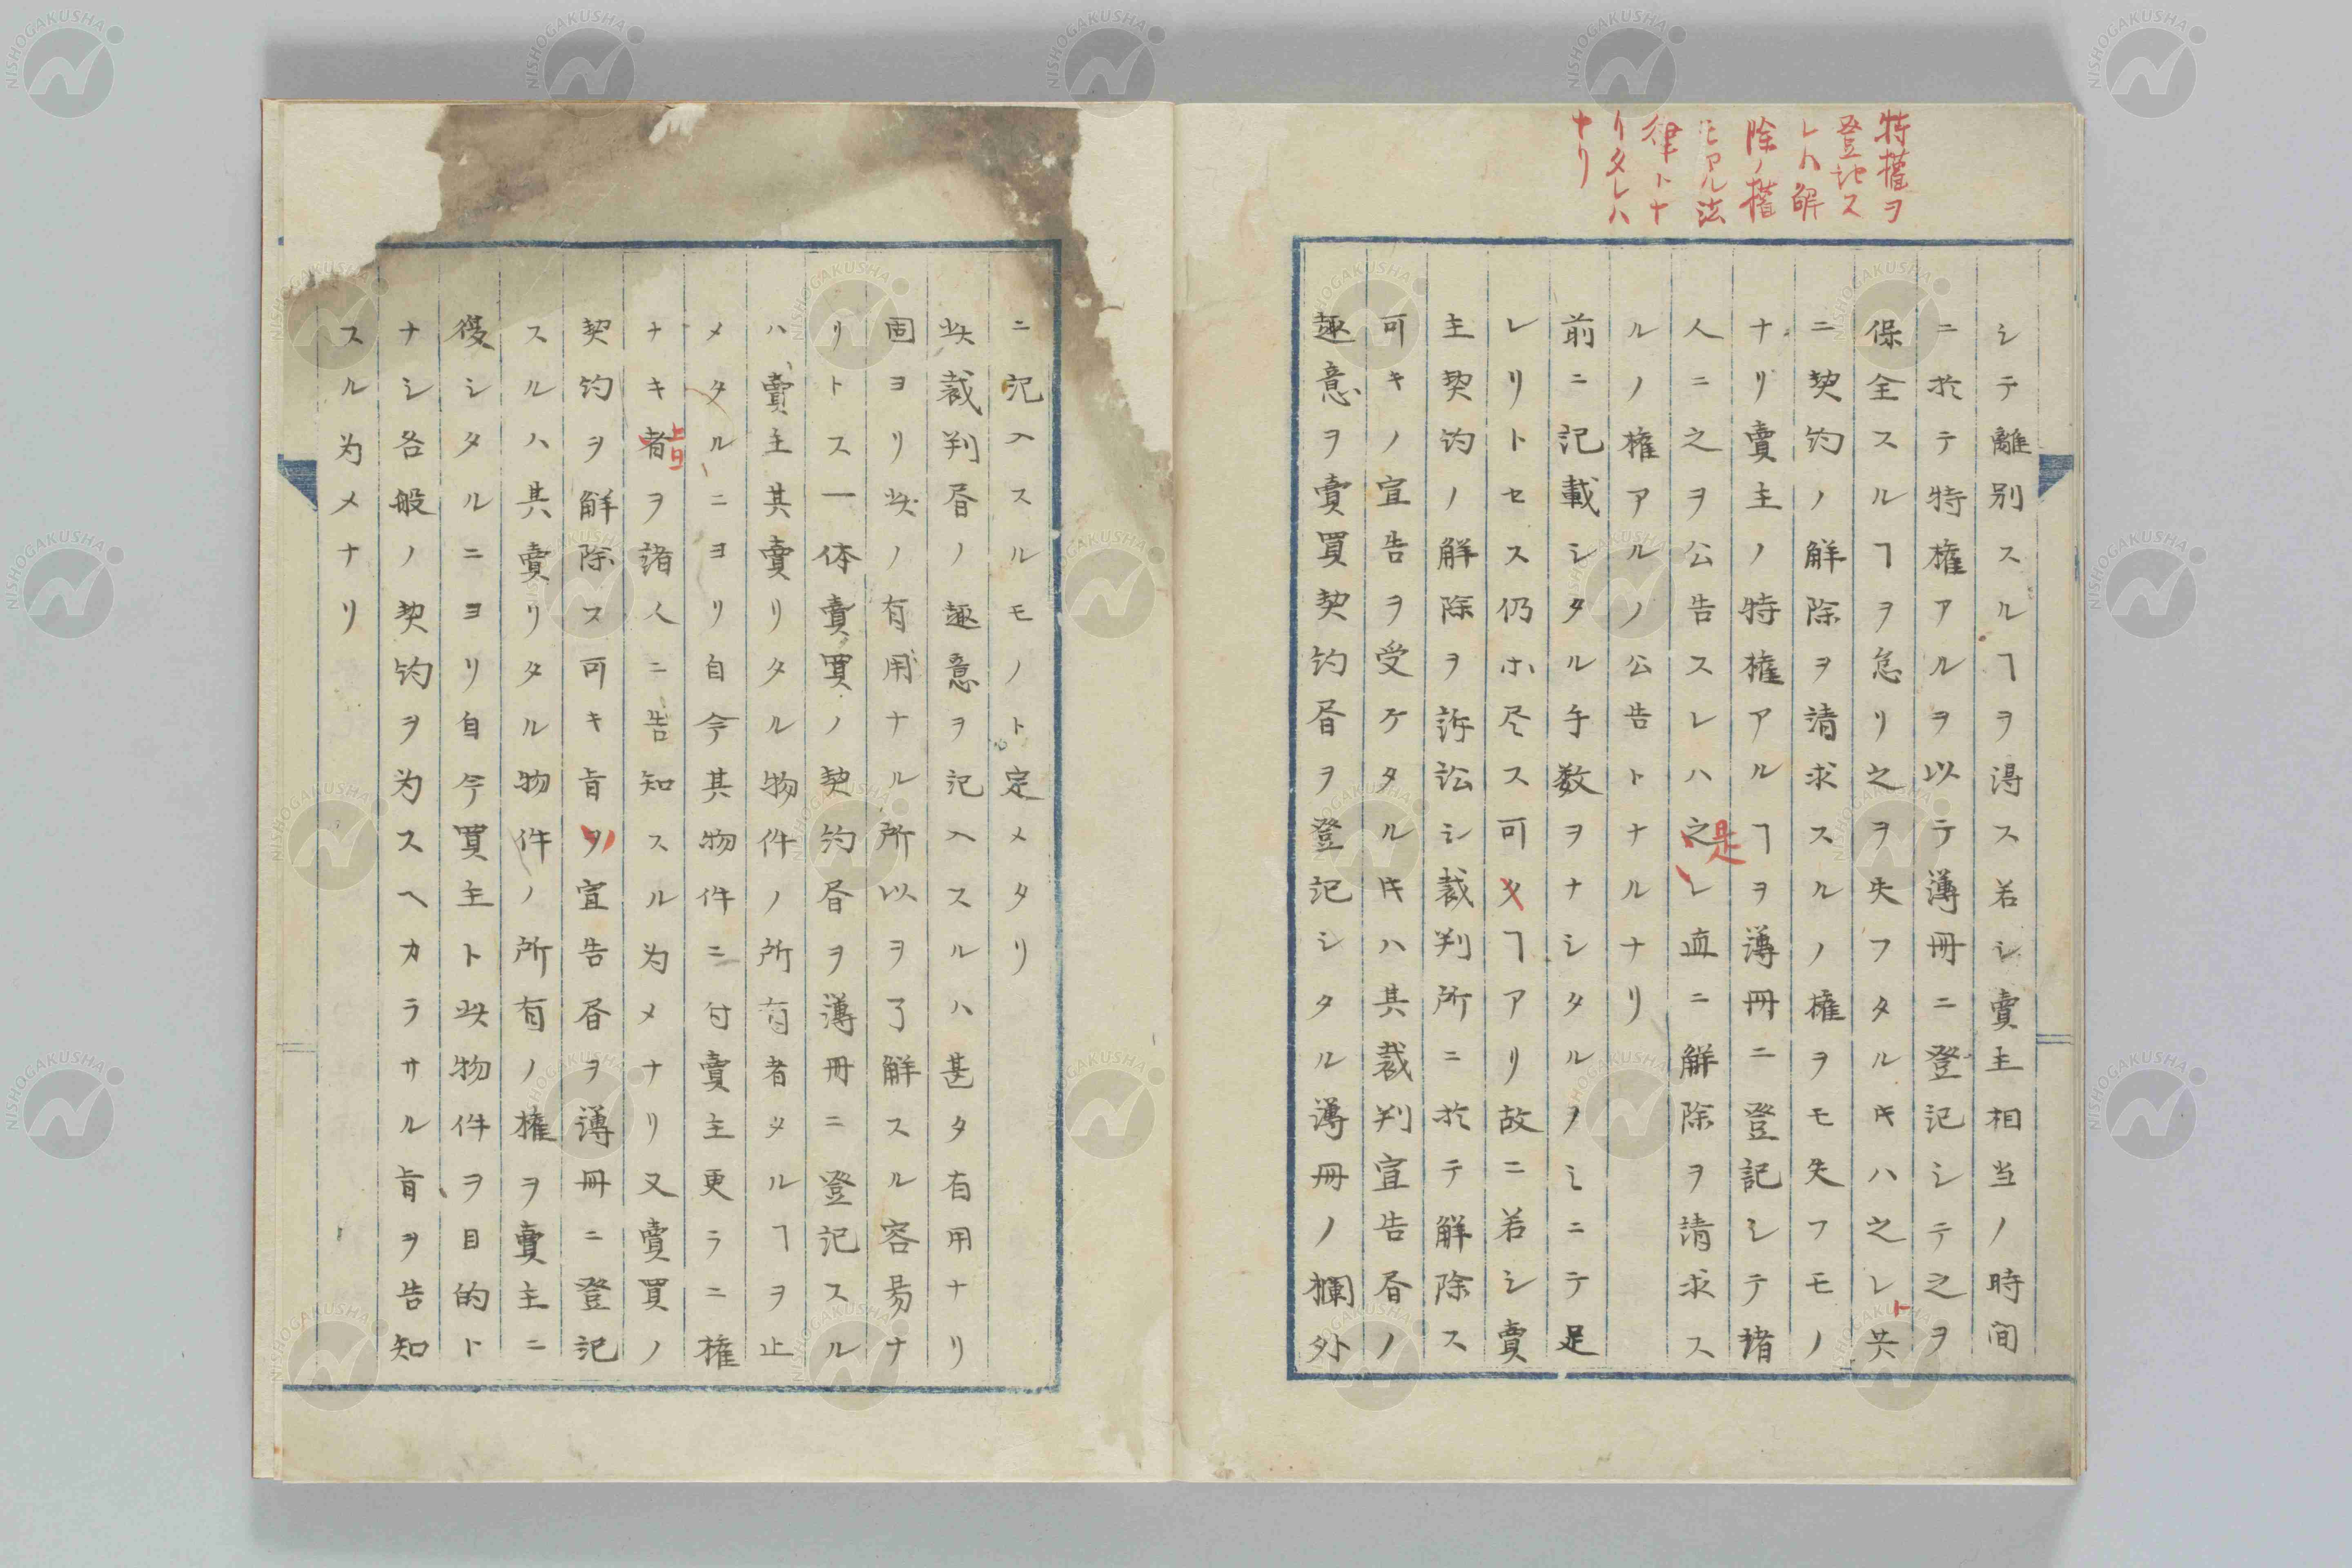 特權ヲ
登記ス
レハ解
除ノ權
モアル法
律トナ
リタレハ
ナリ
シテ離別スルヿヲ得ス若シ賣主相当ノ時間
ニ於テ特権アルヲ以テ薄冊ニ登記シテ之ヲ
保全スルヿヲ怠リ之ヲ失フタルキハ之レト共
ニ契約ノ解除ヲ請求スルノ権ヲモ失フモノ
ナリ賣主ノ特権アルヿヲ薄冊ニ登記シテ諸
人ニ之ヲ公告スレハ之是レ直ニ解除ヲ請求ス
ルノ権アルノ公告トナルナリ
前ニ記載シタル手数ヲナシタルノミニテ足
レリトセス仍ホ尽ス可タヿアリ故ニ若シ賣
主契約ノ解除ヲ訴訟シ裁判所ニ於テ解除ス
可キノ宣告ヲ受ケタルキハ其裁判宣告書ノ
趣意ヲ賣買契約書ヲ登記シタル薄冊ノ欄外
ニ記入スルモノト定メタリ
此裁判書ノ趣意ヲ記入スルハ甚タ有用ナリ
固ヨリ此ノ有用ナル所以ヲ了解スル容昜ナ
リトス一体賣買ノ契約書ヲ薄冊ニ登記スル
ハ賣主其賣リタル物件ノ所有者タルヿヲ止
メタルニヨリ自今其物件ニ付賣主更ラニ権
ナキ者旨ヲ諸人ニ告知スル为メナリ又賣買ノ
契約ヲ解除ス可キ旨ヲ宣告書ヲ薄冊ニ登記
スルハ其賣リタル物件ノ所有ノ権ヲ賣主ニ
復シタルニヨリ自今買主ト此物件ヲ目的ト
ナシ各般ノ契約ヲ为スヘカラサル旨ヲ告知
スル为メナリ
NISHOGAKUSHA